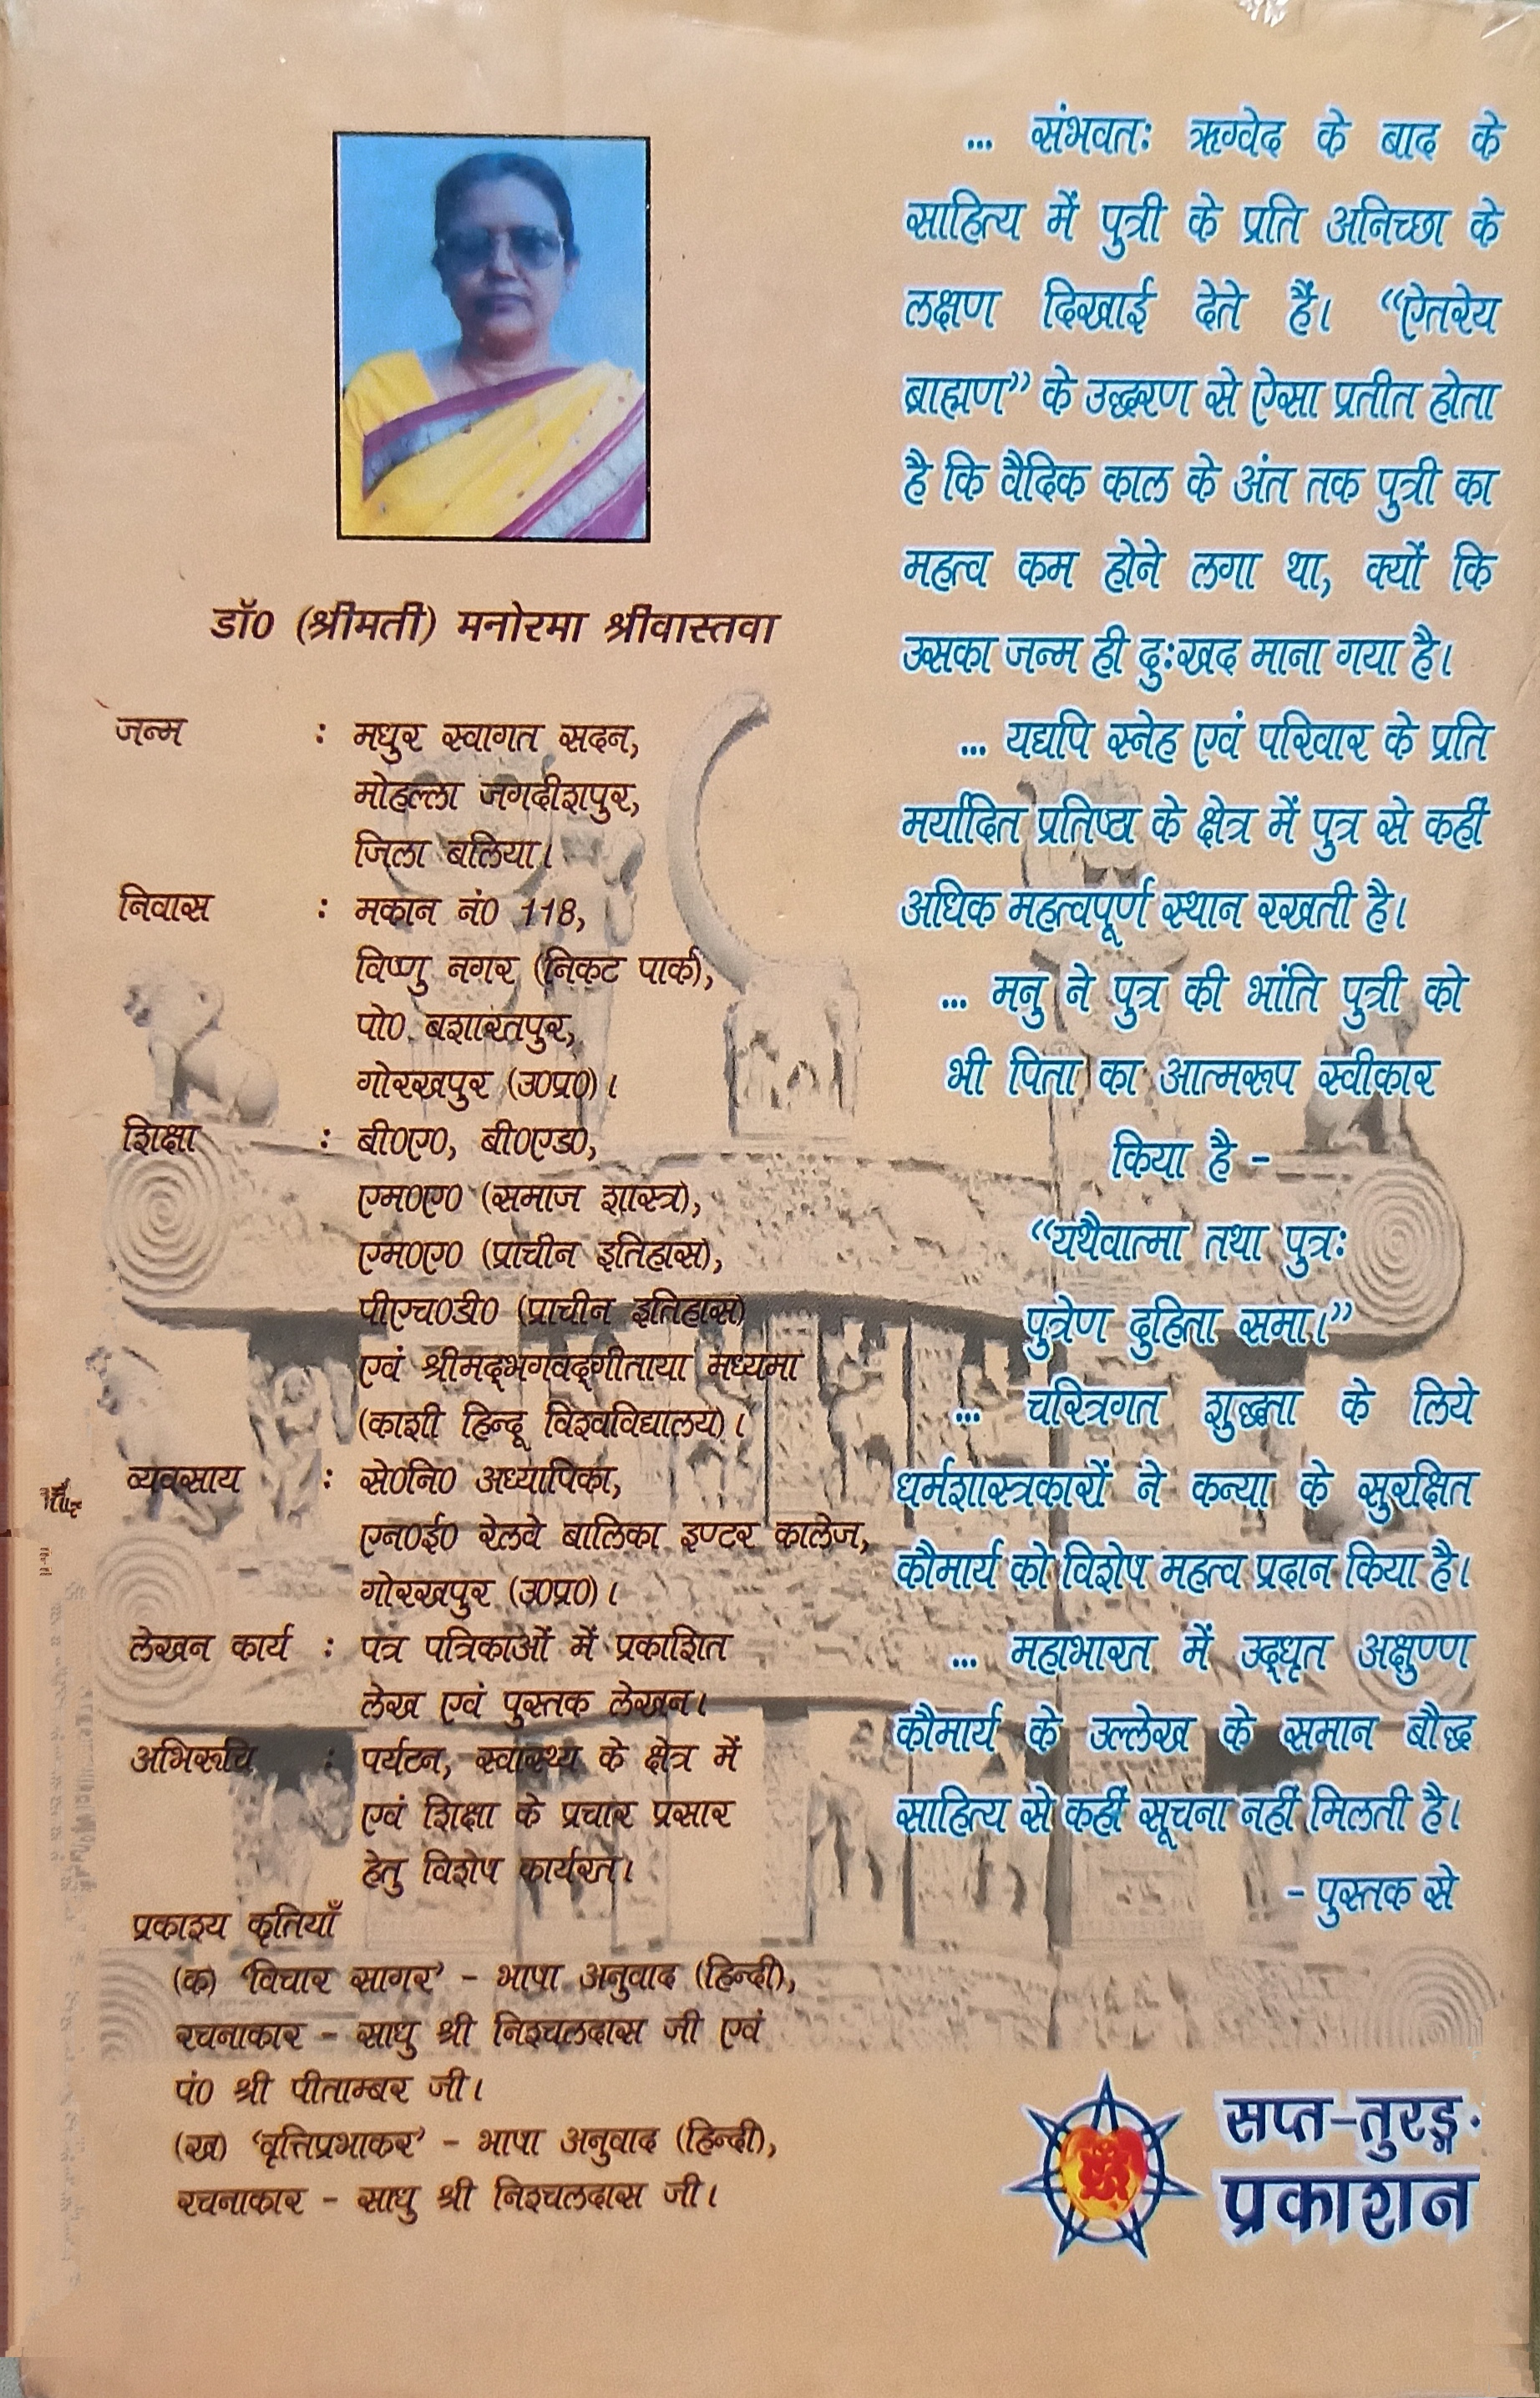 डॉ0 (श्रीमती) मनोरमा श्रीवास्तवा
जन्म : मधुर स्वागत सदन,
मोहल्ला जगदीशपुर,
जिला बलिया।
निवास : मकान नं0 118,
विष्णु नगर (निकट पार्क),
पो0 बशारतपुर,
गोरखपुर (उ0प्र0)।
शिक्षा : बी0ए0, बी0एड0,
एम0ए0 (समाज शास्त्र),
एम0ए0 (प्राचीन इतिहास),
पीएच0डी0 (प्राचीन इतिहास)
एवं श्रीमद्भगवद्गीताया मध्यमा
(काशी हिन्दू विश्वविद्यालय)।
व्यवसाय : से0नि0 अध्यापिका,
एन0ई0 रेलवे बालिका इण्टर कालेज,
गोरखपुर (उ0प्र0)।
लेखन कार्य : पत्र पत्रिकाओं में प्रकाशित
लेख एवं पुस्तक लेखन।
अभिरूचि : पर्यटन, स्वास्थ्य के क्षेत्र में
एवं शिक्षा के प्रचार प्रसार
हेतु विशेष कार्यरत।
प्रकाश्य कृतियाँ
(क) 'विचार सागर' - भाषा अनुवाद (हिन्दी),
रचनाकार - साधु श्री निश्चलदास जी एवं
पं0 श्री पीताम्बर जी।
(ख) 'वृत्तिप्रभाकर' - भाषा अनुवाद (हिन्दी),
रचनाकार - साधु श्री निश्चलदास जी।
... संभवतः ऋग्वेद के बाद के
साहित्य में पुत्री के प्रति अनिच्छा के
लक्षण दिखाई देते हैं। “ऐतरेय
ब्राह्मण” के उद्धरण से ऐसा प्रतीत होता
है कि वैदिक काल के अंत तक पुत्री का
महत्व कम होने लगा था, क्यों कि
उसका जन्म ही दुःखद माना गया है।
... यद्यपि स्नेह एवं परिवार के प्रति
मर्यादित प्रतिष्ठा के क्षेत्र में पुत्र से कहीं
अधिक महत्वपूर्ण स्थान रखती है।
... मनु ने पुत्र की भांति पुत्री को
भी पिता का आत्मरूप स्वीकार
किया है -
“यथैवात्मा तथा पुत्रः
पुत्रेण दुहिता समा।”
... चरित्रगत शुद्धता के लिये
धर्मशास्त्रकारों ने कन्या के सुरक्षित
कौमार्य को विशेष महत्व प्रदान किया है।
... महाभारत में उद्धृत अक्षुण्ण
कौमार्य के उल्लेख के समान बौद्ध
साहित्य से कहीं सूचना नहीं मिलती है।
- पुस्तक से
सप्त-तुरङ्ग
प्रकाशन